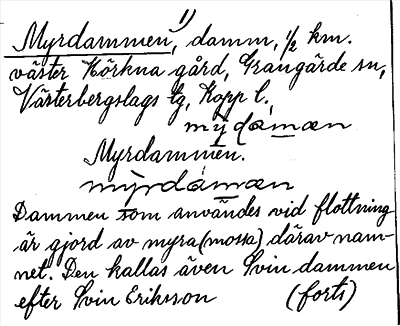 1)
Myrdammen, damm, 1/2 km.
väster Hörkna gård, Grangärde sn,
Västerbergslags tg, Kopp l.
mỳdámæn
Myrdammen.
mỳrdámæn
Dammen som användes vid flottning
är gjord av myra (mossa) därav nam-
net. Den kallas även Svin dammen
efter Svin Eriksson (forts)